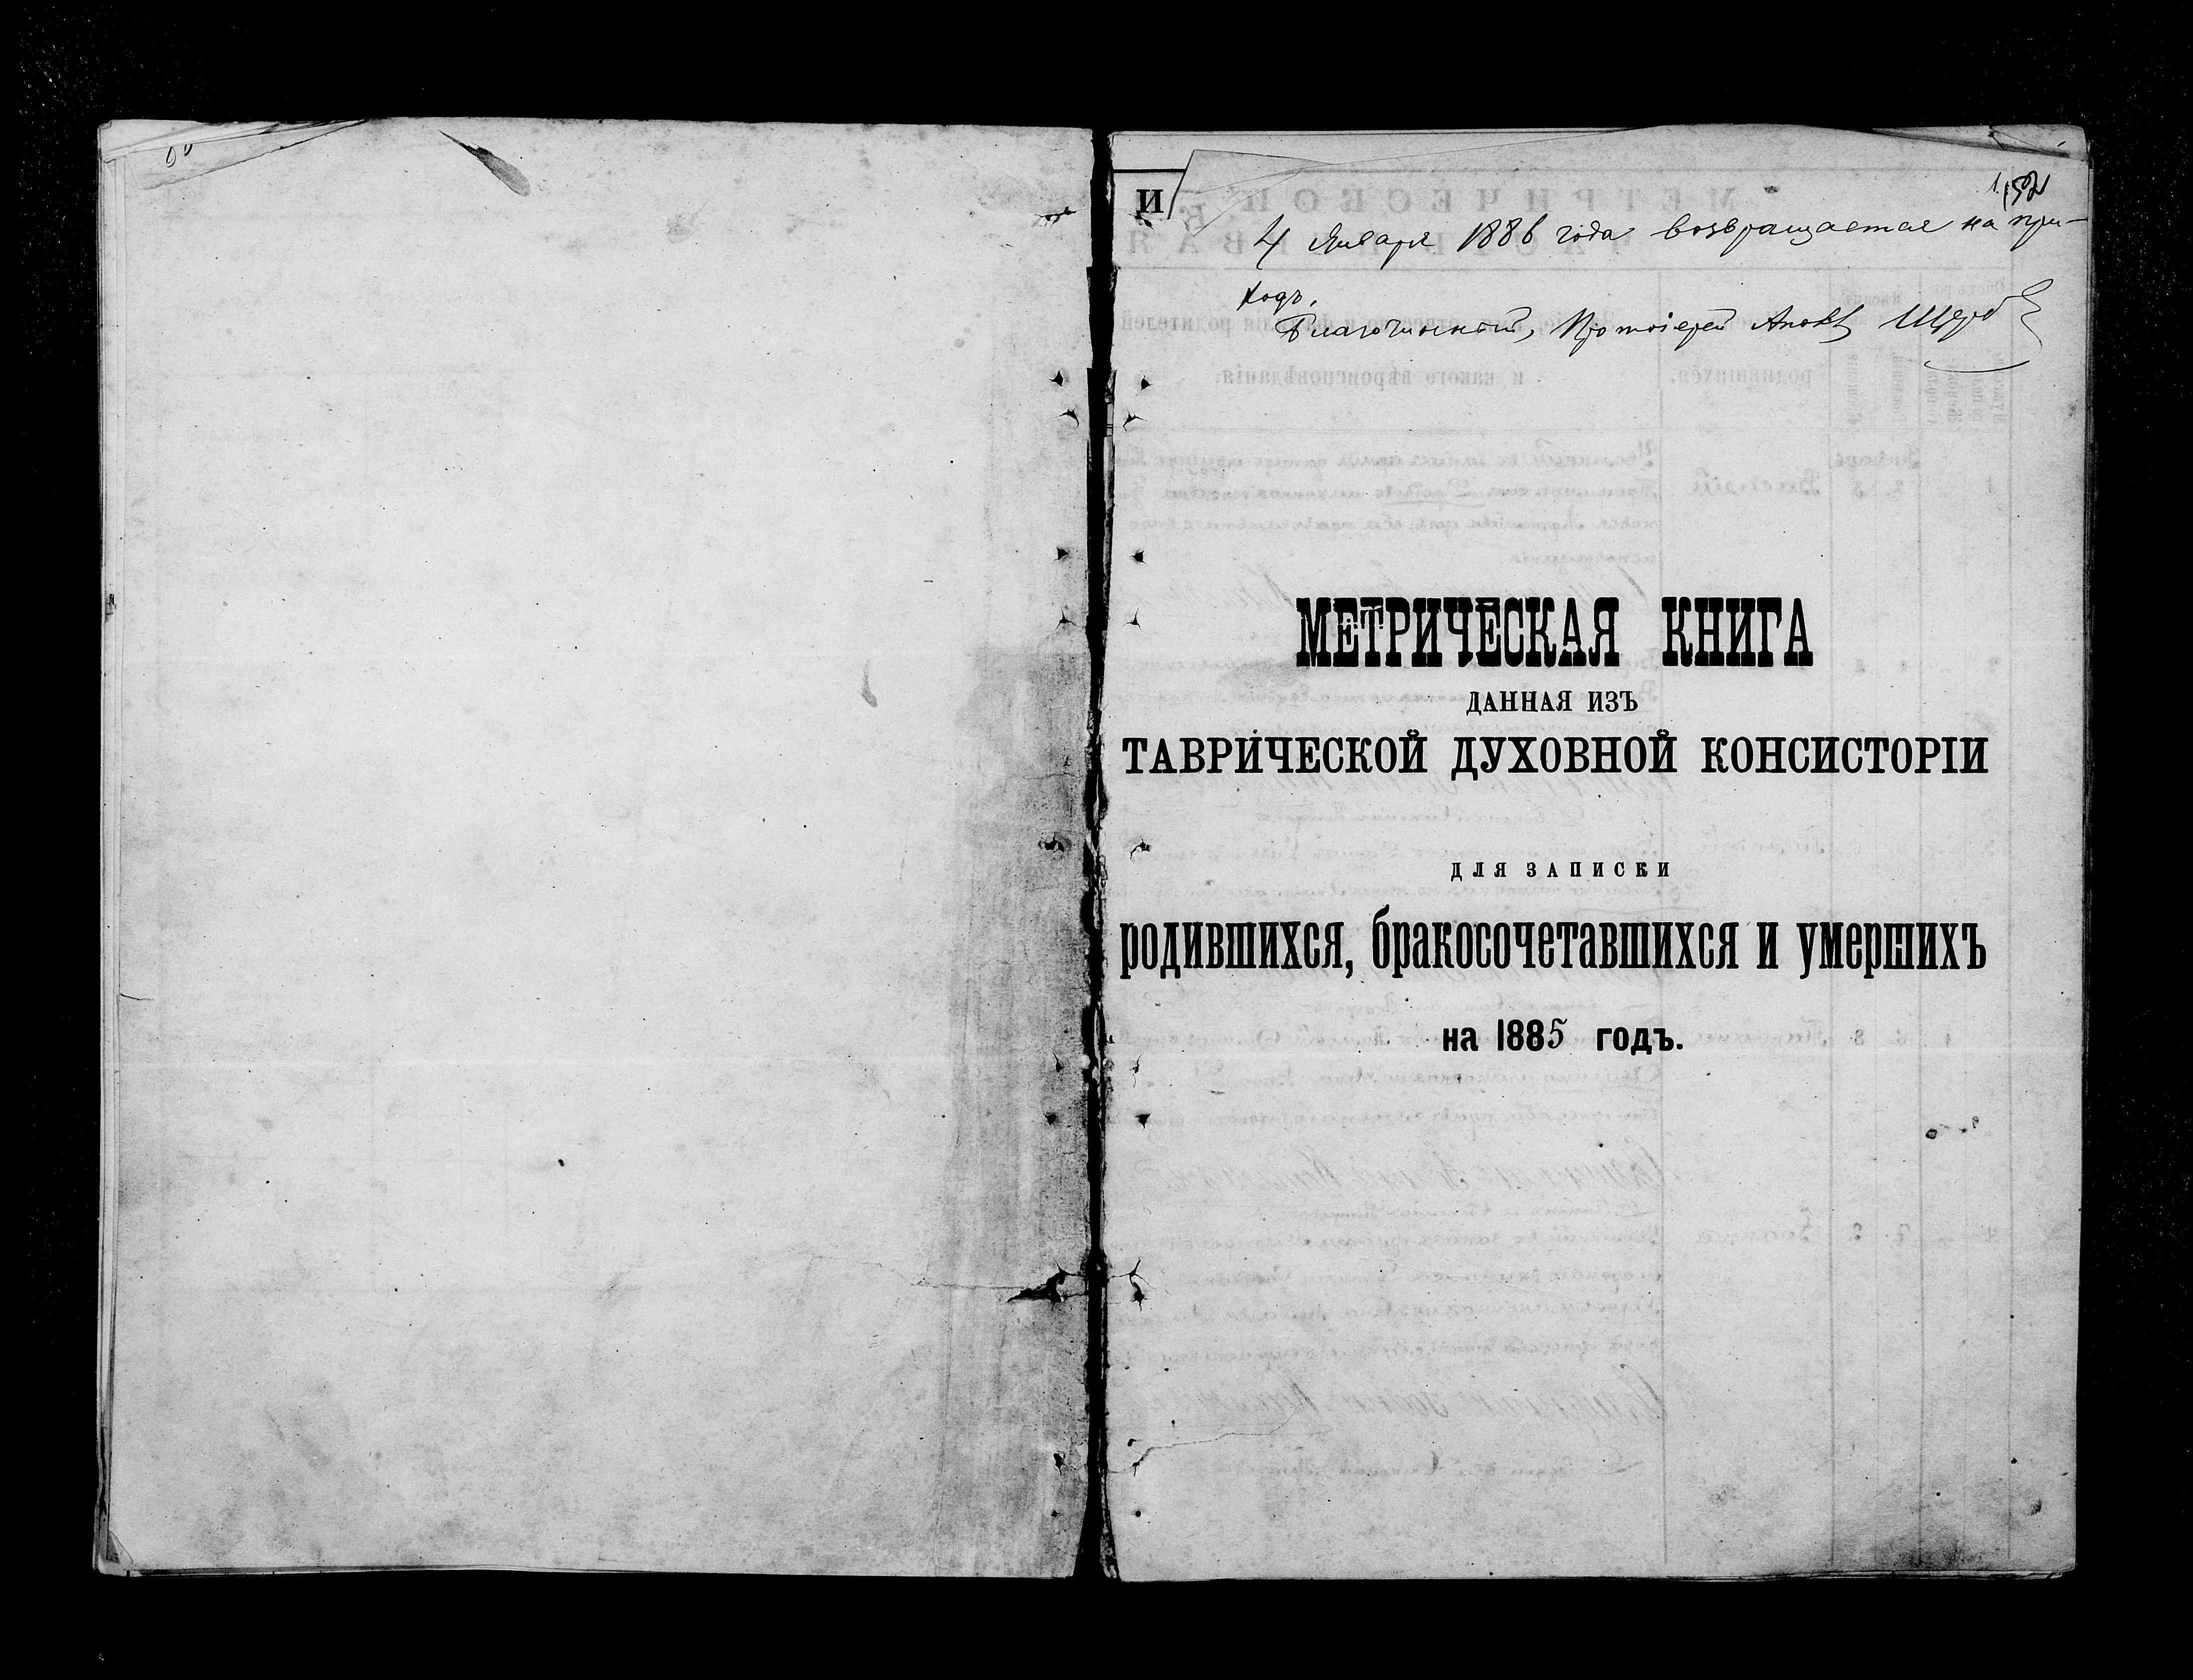 И
4 Января 1886 года возвращается на при-
ходъ.
Благочинный, Протоіерей
МЕТРИЧЕСКАЯ КНИГА
ДАННАЯ ИЗЪ
ТАВРИЧЕСКОЙ ДУХОВНОЙ КОНСИСТОРІИ
ДЛЯ ЗАПИСКИ
родившихся, бракосочетавшихся и умершихъ
на 1885 годъ.